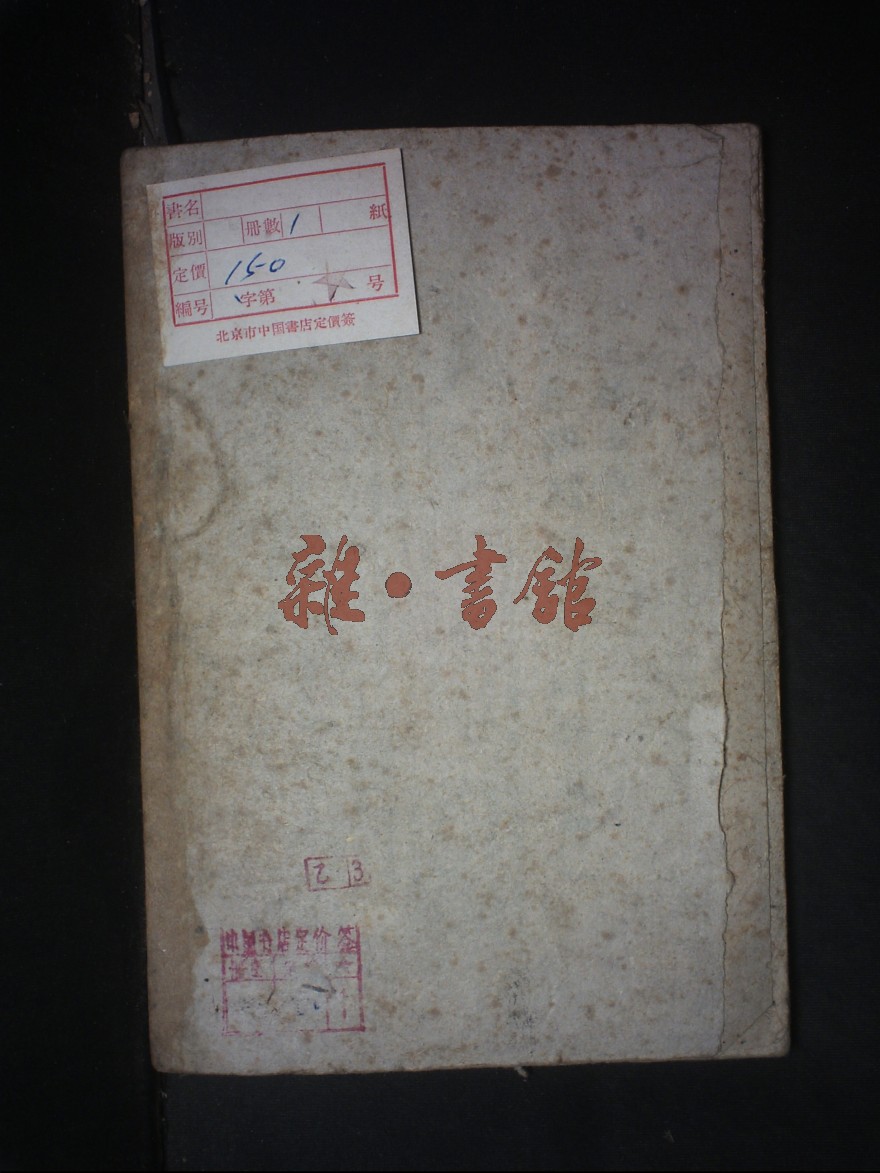 書名
版別 冊數 1 紙
定價 150
編号 字第 号
北京市中国書店定價簽
雜·書館
乙 3
中国书店定价签